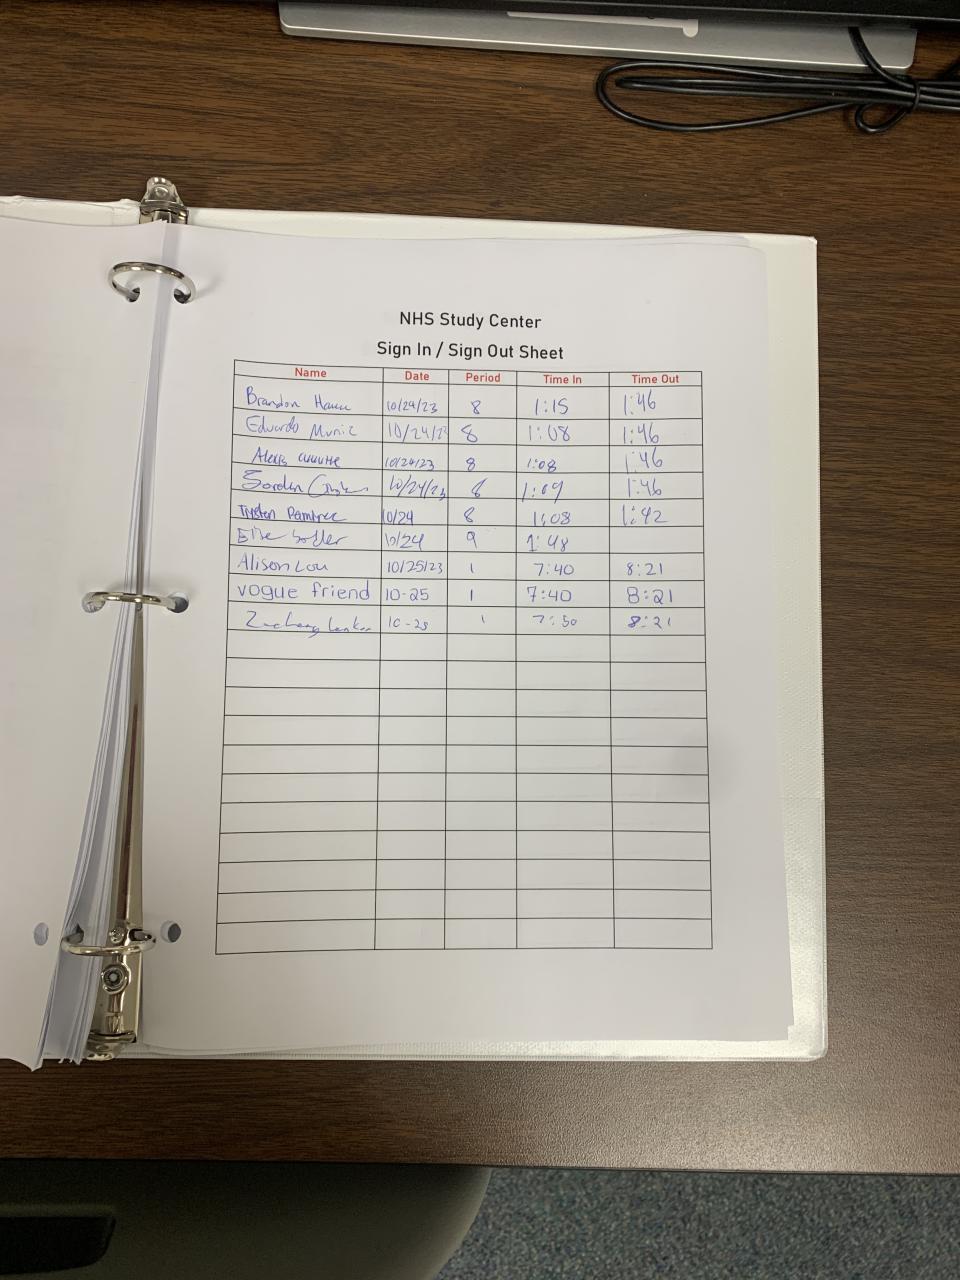 NHS Study Center
Sign In / Sign Out Sheet
Name Date Period Time In Time Out
Brandon 10/24/23 8 1:15 1:46
Eduardo Muniz 10/24/23 8 1:08 1:46
Alexis 10/24/23 8 1:08 1:46
10/24/23 8 1:09 1:46
Tristen Ramirez 10/24 8 1:08 1:42
10/24 9 1:48
Alison Lou 10/25/23 1 7:40 8:21
vogue friend 10-25 1 7:40 8:21
Zachary 10-25 1 7:50 8:21